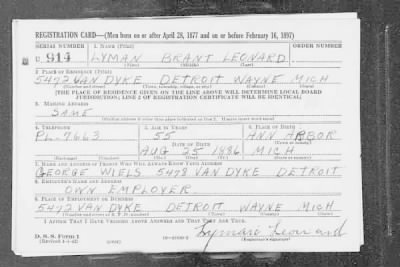 REGISTRATION CARD—(Men born on or after April 28, 1877 and on or before February 16, 1897)
SERIAL NUMBER 1. NAME (Print) ORDER NUMBER
U 914 LYMAN BRANT LEONARD
(First) (Middle) (Last)
2. PLACE OF RESIDENCE (Print)
5472 VAN DYKE DETROIT WAYNE MICH
(Number and street) (Town, township, village, or city) (County) (State)
[THE PLACE OF RESIDENCE GIVEN ON THE LINE ABOVE WILL DETERMINE LOCAL BOARD
JURISDICTION; LINE 2 OF REGISTRATION CERTIFICATE WILL BE IDENTICAL]
3. MAILING ADDRESS
SAME
[Mailing address if other than place indicated on line 2. If same insert word same]
4. TELEPHONE 5. AGE IN YEARS 6. PLACE OF BIRTH
PL. 7663 55 ANN ARBOR
DATE OF BIRTH (Town or county)
AUG 25 1886 MICH
(Exchange) (Number) (Mo.) (Day) (Yr.) (State or country)
7. NAME AND ADDRESS OF PERSON WHO WILL ALWAYS KNOW YOUR ADDRESS
GEORGE WIELS 5478 VAN DYKE DETROIT
8. EMPLOYER'S NAME AND ADDRESS
OWN EMPLOYER
9. PLACE OF EMPLOYMENT OR BUSINESS
5472 VAN DYKE DETROIT WAYNE MICH
(Number and street or R. F. D. number) (Town) (County) (State)
I AFFIRM THAT I HAVE VERIFIED ABOVE ANSWERS AND THAT THEY ARE TRUE.
D. S. S. Form 1
(Revised 4-1-42) (over) Lyman Leonard
(Registrant's signature)